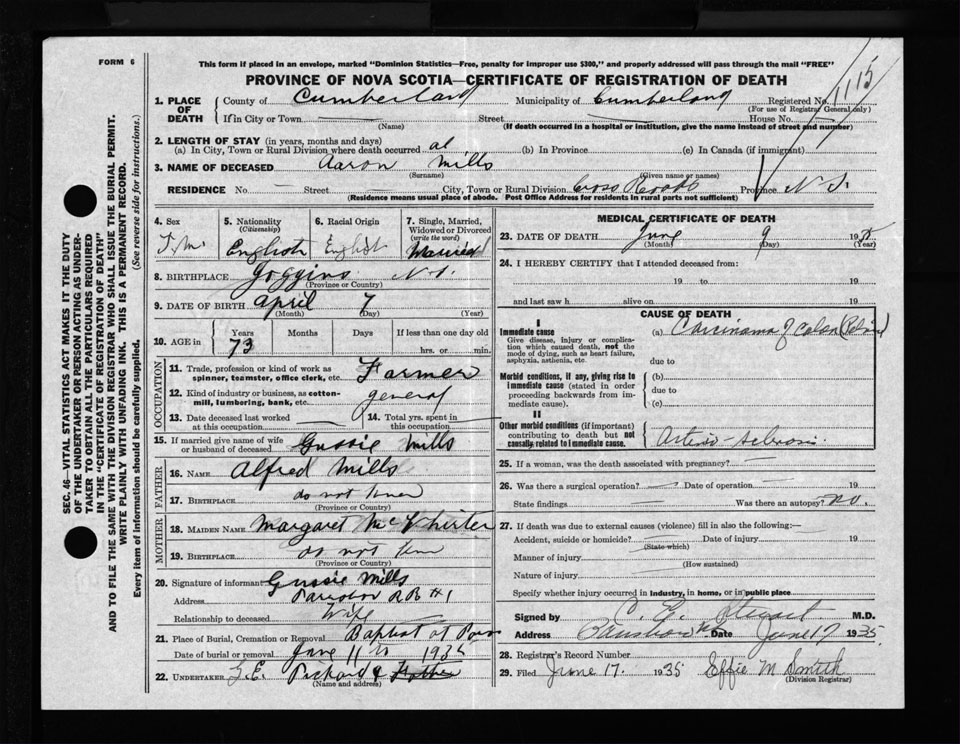 FORM 6
This form if placed in an envelope, marked "Dominion Statistics—Free, penalty for improper use $300," and properly addressed will pass through the mail "FREE"
PROVINCE OF NOVA SCOTIA—CERTIFICATE OF REGISTRATION OF DEATH
1115
SEC. 46—VITAL STATISTICS ACT MAKES IT THE DUTY
OF THE UNDERTAKER OR PERSON ACTING AS UNDER-
TAKER TO OBTAIN ALL THE PARTICULARS REQUIRED
IN THE "CERTIFICATE OF REGISTRATION OF DEATH"
AND TO FILE THE SAME WITH THE DIVISION REGISTRAR WHO SHALL ISSUE THE BURIAL PERMIT.
WRITE PLAINLY WITH UNFADING INK. THIS IS A PERMANENT RECORD.
Every item of information should be carefully supplied. (See reverse side for instructions.)
1. PLACE OF DEATH County of Cumberland Municipality of Cumberland Registered No.
(For use of Registrar General only)
If in City or Town Street House No.
(Name) (If death occurred in a hospital or institution, give the name instead of street and number)
2. LENGTH OF STAY (in years, months and days)
(a) In City, Town or Rural Division where death occurred al (b) In Province (c) In Canada (if immigrant)
3. NAME OF DECEASED Aaron Mills
(Surname) (Given name or names)
RESIDENCE No. Street City, Town or Rural Division Cross Roads Province N.S.
(Residence means usual place of abode. Post Office Address for residents in rural parts not sufficient)
4. Sex 5. Nationality (Citizenship) 6. Racial Origin 7. Single, Married, Widowed or Divorced (write the word)
M. English English Married
8. BIRTHPLACE Joggins N.S.
(Province or Country)
9. DATE OF BIRTH April 7
(Month) (Day) (Year)
10. AGE in Years Months Days If less than one day old
73 hrs. or min.
OCCUPATION
11. Trade, profession or kind of work as spinner, teamster, office clerk, etc. Farmer
12. Kind of industry or business, as cotton-mill, lumbering, bank, etc. general
13. Date deceased last worked at this occupation 14. Total yrs. spent in this occupation
15. If married give name of wife or husband of deceased Gussie Mills
FATHER
16. NAME Alfred Mills
17. BIRTHPLACE do not know
(Province or Country)
MOTHER
18. MAIDEN NAME Margaret McWhirter
19. BIRTHPLACE do not know
(Province or Country)
20. Signature of informant Gussie Mills
Address Parrsboro RR #1
Relationship to deceased Wife
21. Place of Burial, Cremation or Removal Baptist at
Date of burial or removal June 11 1935
22. UNDERTAKER Pickard &
(Name and address)
MEDICAL CERTIFICATE OF DEATH
23. DATE OF DEATH June 9 1935
(Month) (Day) (Year)
24. I HEREBY CERTIFY that I attended deceased from:
19 to 19
and last saw h alive on 19
CAUSE OF DEATH
I
Immediate cause (a) Carcinoma of Colon
Give disease, injury or complica-
tion which caused death, not the
mode of dying, such as heart failure,
asphyxia, asthenia, etc. due to
Morbid conditions, if any, giving rise to (b)
immediate cause (stated in order due to
proceeding backwards from im-
mediate cause). (c)
II
Other morbid conditions (if important)
contributing to death but not
causally related to immediate cause. Arterio-sclerosis.
25. If a woman, was the death associated with pregnancy?
26. Was there a surgical operation? Date of operation 19
State findings Was there an autopsy? no.
27. If death was due to external causes (violence) fill in also the following:—
Accident, suicide or homicide? Date of injury 19
(State which)
Manner of injury
(How sustained)
Nature of injury
Specify whether injury occurred in Industry, in home, or in public place
Signed by C. E. Stewart M.D.
Address Parrsboro NS Date June 17 1935
28. Registrar's Record Number
29. Filed June 17. 1935 Effie M Smith
(Division Registrar)